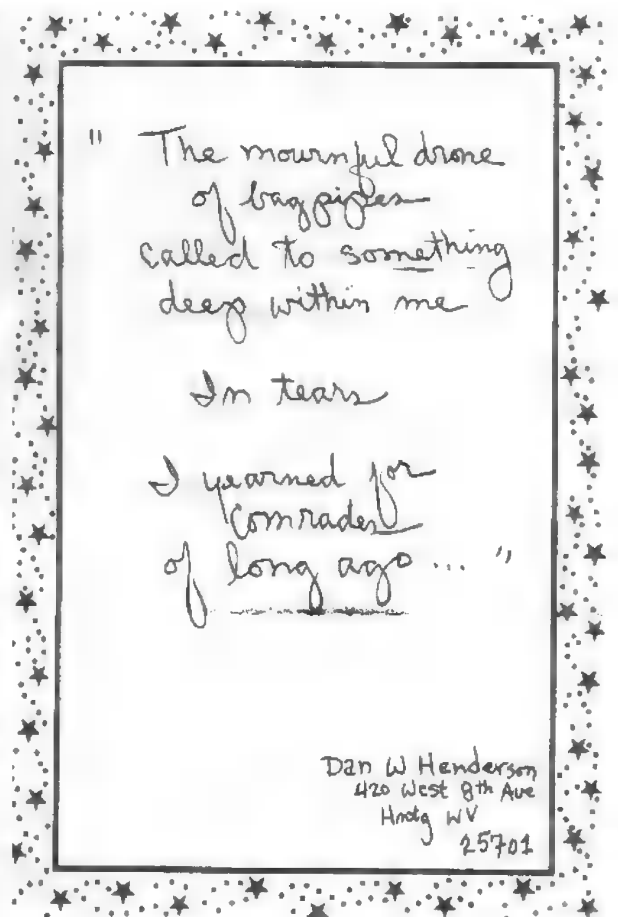 " The mournful drone
of bagpipes
called to something
deep within me
In tears
I yearned for
comrades
of long ago ... "
Dan W Henderson
420 West 8th Ave
Hnotg WV
25701